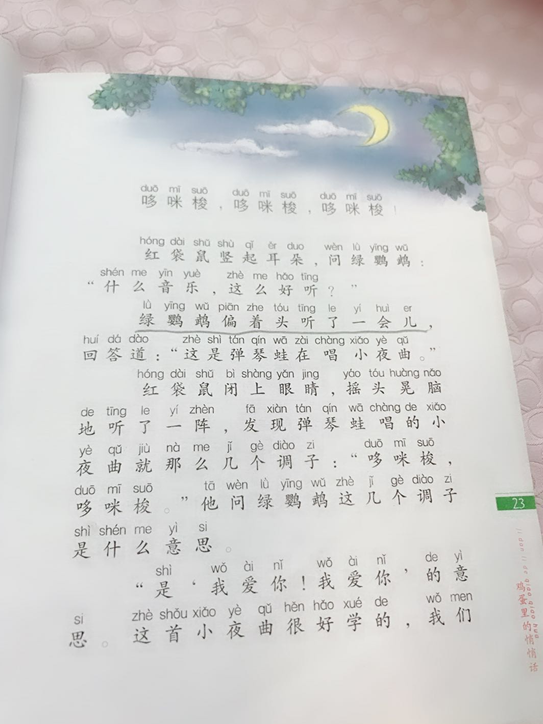 duō mī suō duō mī suō duō mī suō
哆咪梭，哆咪梭，哆咪梭！
hóng dài shǔ shù qǐ ěr duo wèn lǜ yīng wǔ
红袋鼠竖起耳朵，问绿鹦鹉：
shén me yīn yuè zhè me hǎo tīng
“什么音乐，这么好听？”
lǜ yīng wǔ piān zhe tóu tīng le yí huìr
绿鹦鹉偏着头听了一会儿，
huí dá dào zhè shì tán qín wā zài chàng xiǎo yè qǔ
回答道：“这是弹琴蛙在唱小夜曲。”
hóng dài shǔ bì shàng yǎn jing yáo tóu huàng nǎo
红袋鼠闭上眼睛，摇头晃脑
de tīng le yí zhèn fā xiàn tán qín wā chàng de xiǎo
地听了一阵，发现弹琴蛙唱的小
yè qǔ jiù nà me jǐ gè diào zi duō mī suō
夜曲就那么几个调子：“哆咪梭，
duō mī suō tā wèn lǜ yīng wǔ zhè jǐ gè diào zi
哆咪梭。”他问绿鹦鹉这几个调子
shì shén me yì si
是什么意思。
shì wǒ ài nǐ wǒ ài nǐ de yì
“是‘我爱你！我爱你’的意
si zhè shǒu xiǎo yè qǔ hěn hǎo xué de wǒ men
思。这首小夜曲很好学的，我们
23
鸡蛋里的悄悄话